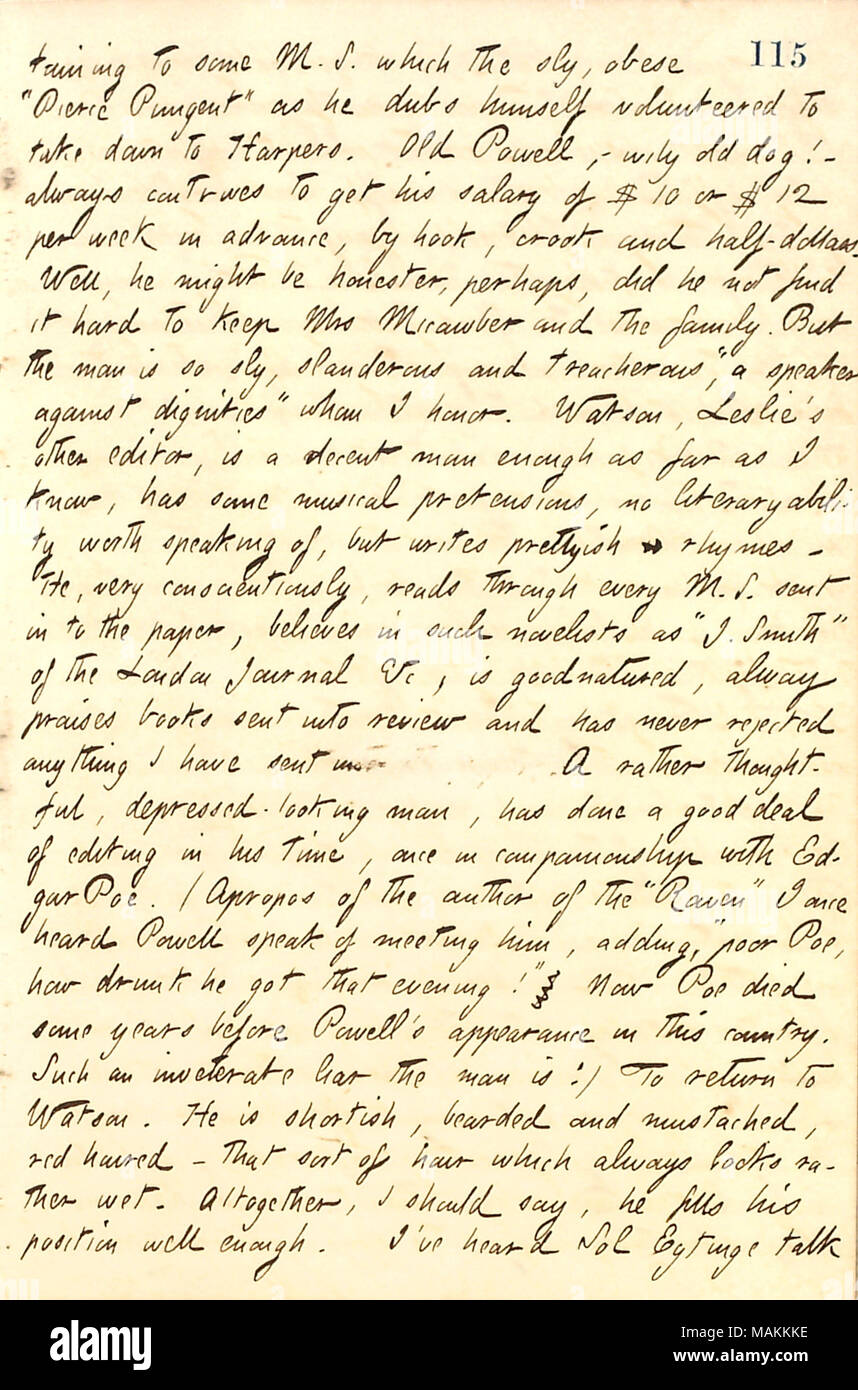 115
taining to some M. S. which the sly, obese
"Pierce Pungent" as he dubs himself volunteered to
take down to Harpers. Old Powell, - wily old dog! -
always contrives to get his salary of $ 10 or $ 12
per week in advance, by hook, crook and half-dollars.
Well, he might be honester, perhaps, did he not find
it hard to keep Mrs Micawber and the family. But
the man is so sly, slanderous and treacherous, "a speaker
against dignities" whom I honor. Watson, Leslie's
other editor, is a decent man enough as far as I
know, has some musical pretensions, no literary abili-
ty worth speaking of, but writes prettyish rhymes -
He, very conscientiously, reads through every M. S. sent
in to the paper, believes in such novelists as "J. Smith"
of the London Journal &c, is goodnatured, alway
praises books sent into review and has never rejected
anything I have sent A rather thought-
ful, depressed-looking man, has done a good deal
of editing in his time, once in companionship with Ed-
gar Poe. (Apropos of the author of the "Raven" I once
heard Powell speak of meeting him, adding, "poor Poe,
how drunk he got that evening!" Now Poe died
some years before Powell's appearance in this country.
Such an inveterate liar the man is!) To return to
Watson. He is shortish, bearded and mustached,
red haired - that sort of hair which always looks ra-
ther wet. Altogether, I should say, he fills his
position well enough. I've heard Sol Eytinge talk
alamy
Image ID: MAKKKE
www.alamy.com